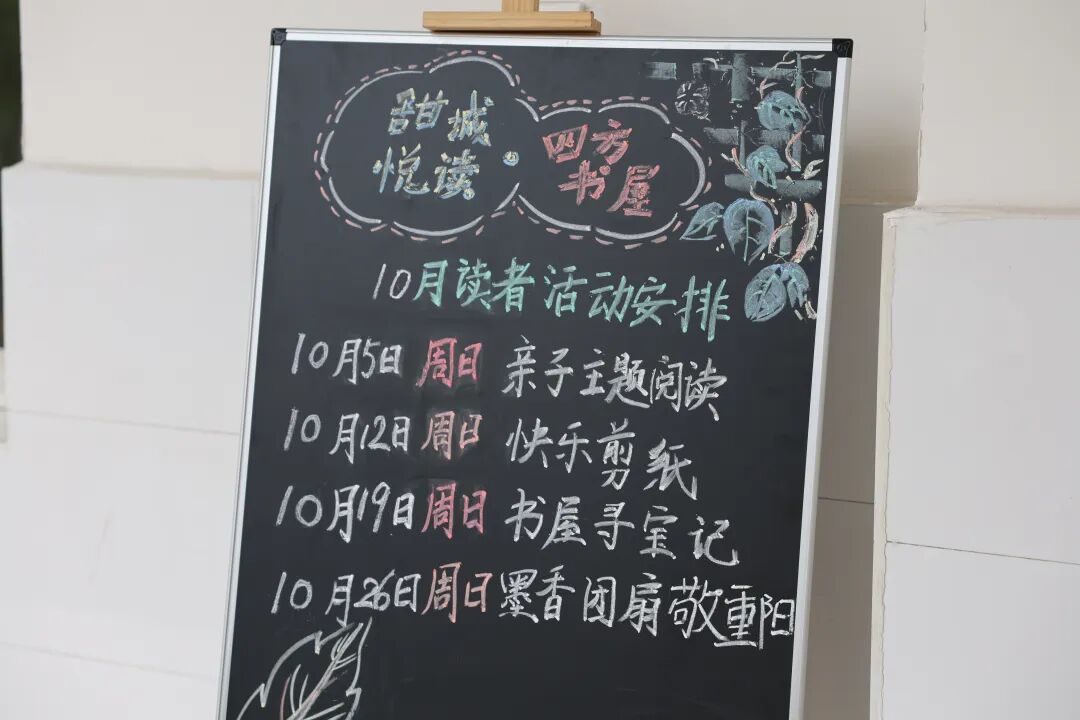 甜城
悦读·四方
书屋
10月读者活动安排
10月5日 周日 亲子主题阅读
10月12日 周日 快乐剪纸
10月19日 周日 书屋寻宝记
10月26日 周日 墨香团扇敬重阳